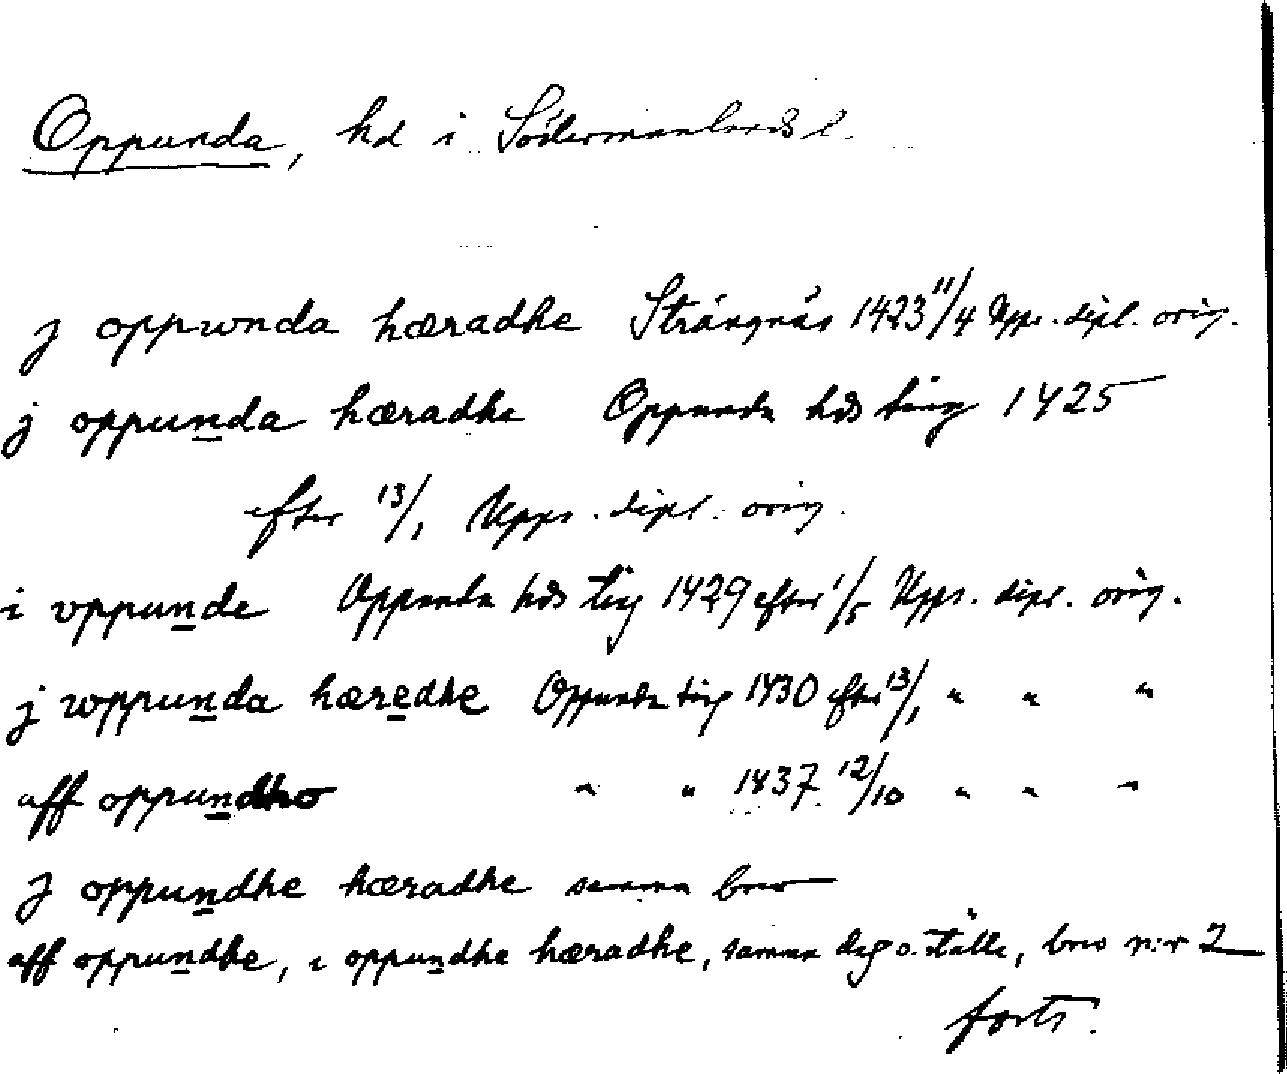 Oppunda, hd i Södermanlands l.
j oppwnda hæradhe Strängnäs 1423 11/4 Upps. dipl. orig.
j oppunda hæradhe Oppunda hds ting 1425
efter 13/1 Upps. dipl. orig.
i vppunde Oppunda hds ting 1429 efter 1/5 Upps. dipl. orig.
j woppunda hæredhe Oppunda ting 1430 efter 13/1 " " "
aff oppundho " " 1437 12/10 " " "
j oppundhe hæradhe samma brev
aff oppundhe, i oppundhe hæradhe, samma dag o. ställe, brev n:r 2
forts.